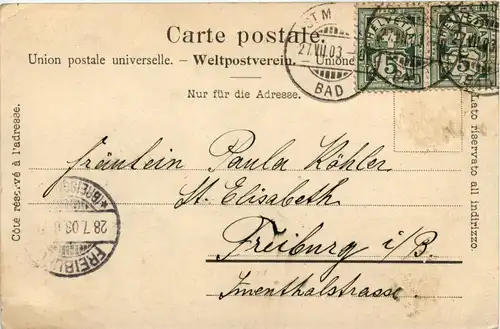 Carte postale.
Union postale universelle. – Weltpostverein. – Unione
Nur für die Adresse.
Côté réservé à l'adresse.
Lato riservato all indirizzo.
ST M
27.VII.03
BAD
HELVETIA
5
5
BAD
Fräulein Paula Köhler
St. Elisabeth
Freiburg i/B.
Immenthalstrasse
28.7.03
FREIBU
(BREISG